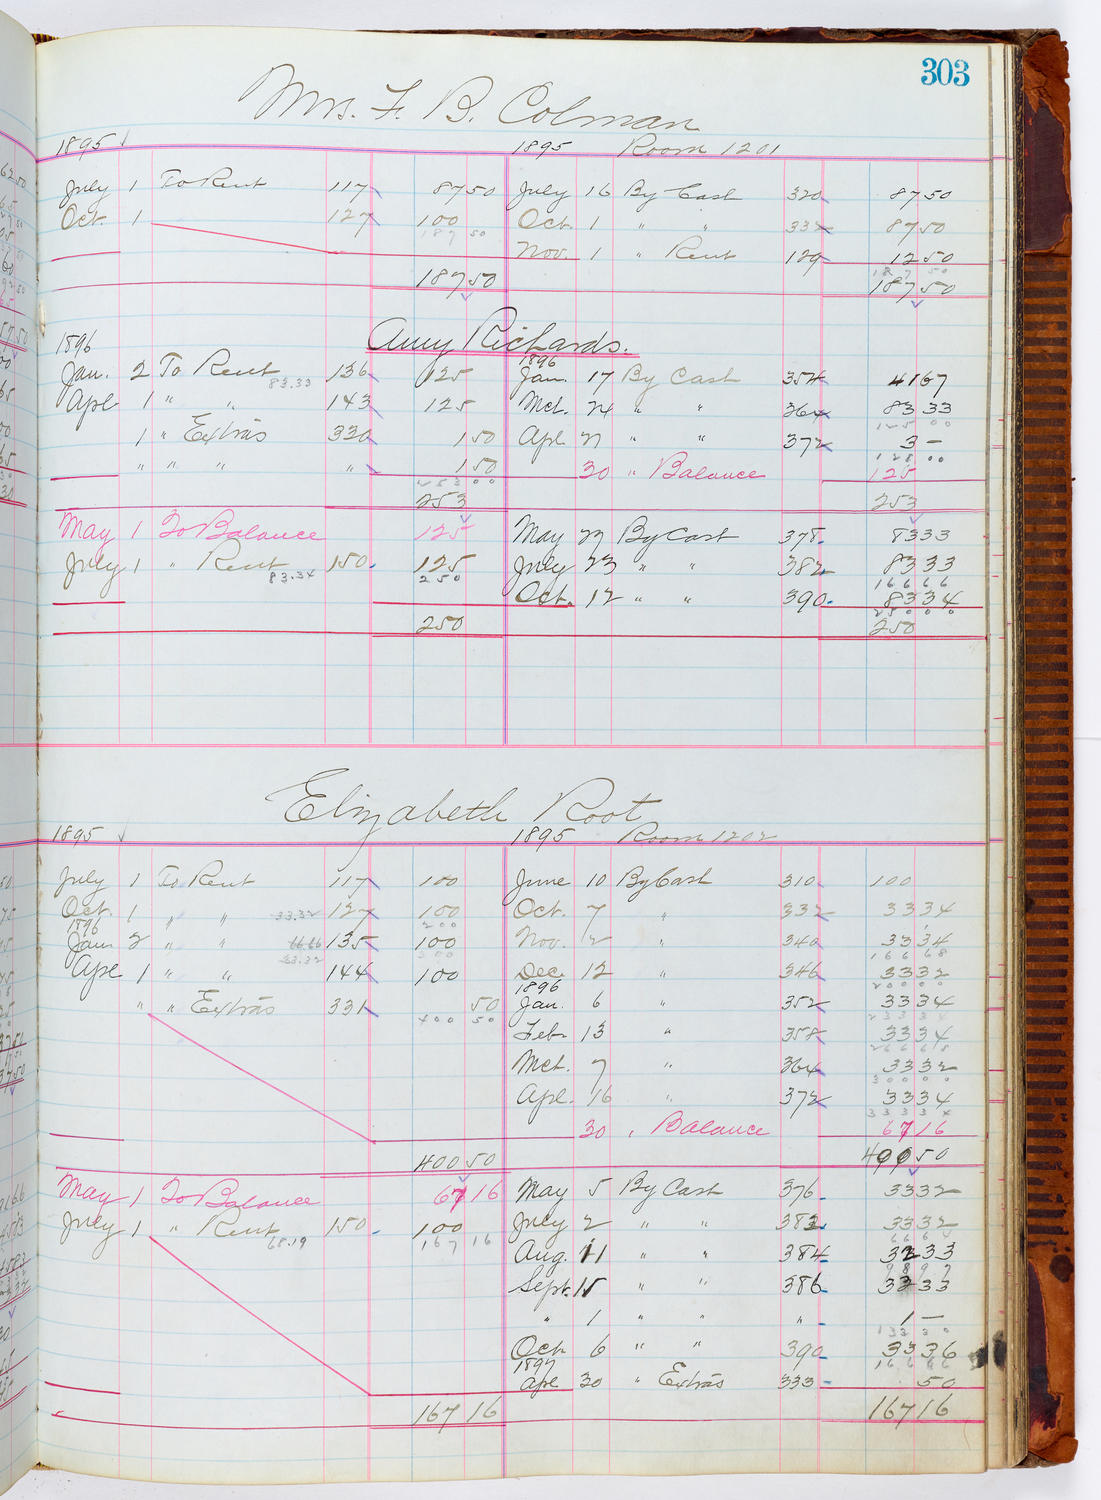 303
Mrs. F. B. Colman
1895 1895 Room 1201
July 1 To Rent 117 87 50 July 16 By Cash 320 87 50
Oct. 1 127 100 Oct. 1 " " 332 87 50
187 50
Nov. 1 " Rent 129 12 50
187 50
187 50 187 50
Amy Richards.
1896 1896
Jan. 2 To Rent 83.33 136 125 Jan. 17 By Cash 354 41 67
Apl 1 " " 143 125 Mct. 24 " " 364 83 33
125 00
1 " Extras 330 1 50 Apl 27 " " 372 3 —
128 00
" " " " 1 50 30 " Balance 125
253 00
253 253
May 1 To Balance 125 May 27 By Cash 378 83 33
July 1 " Rent 83.34 150 125 July 23 " " 382 83 33
250 166 66
Oct. 12 " " 390 83 34
250 00
250 250
Elizabeth Root
1895 1895 Room 1202
July 1 To Rent 117 100 June 10 By Cash 310 100
Oct. 1 " " 33.32 127 100 Oct. 7 " 332 33 34
1896 200
Jan 2 " " 66.66 135 100 Nov. 12 " 340 33 34
33.32 300 166 68
Apl 1 " " 144 100 Dec 12 " 346 33 32
1896 200 00
" " Extras 331 50 Jan. 6 " 352 33 34
400 50 233 34
Feb 13 " 358 33 34
266 68
Mct. 7 " 364 33 32
300 00
Apl. 16 " 372 33 34
333 34
30 " Balance 67 16
400 50 400 50
May 1 To Balance 67 16 May 5 By Cash 376 33 32
July 1 " Rent 68.19 150 100 July 2 " " 382 33 32
167 16 66 64
Aug. 11 " " 384 32 33
98 97
Sept. 15 " " 386 33 33
" 1 " " " 1 —
133 30
Oct 6 " " 390 33 36
1897 166 66
Apl 30 " Extras 333 50
167 16 167 16